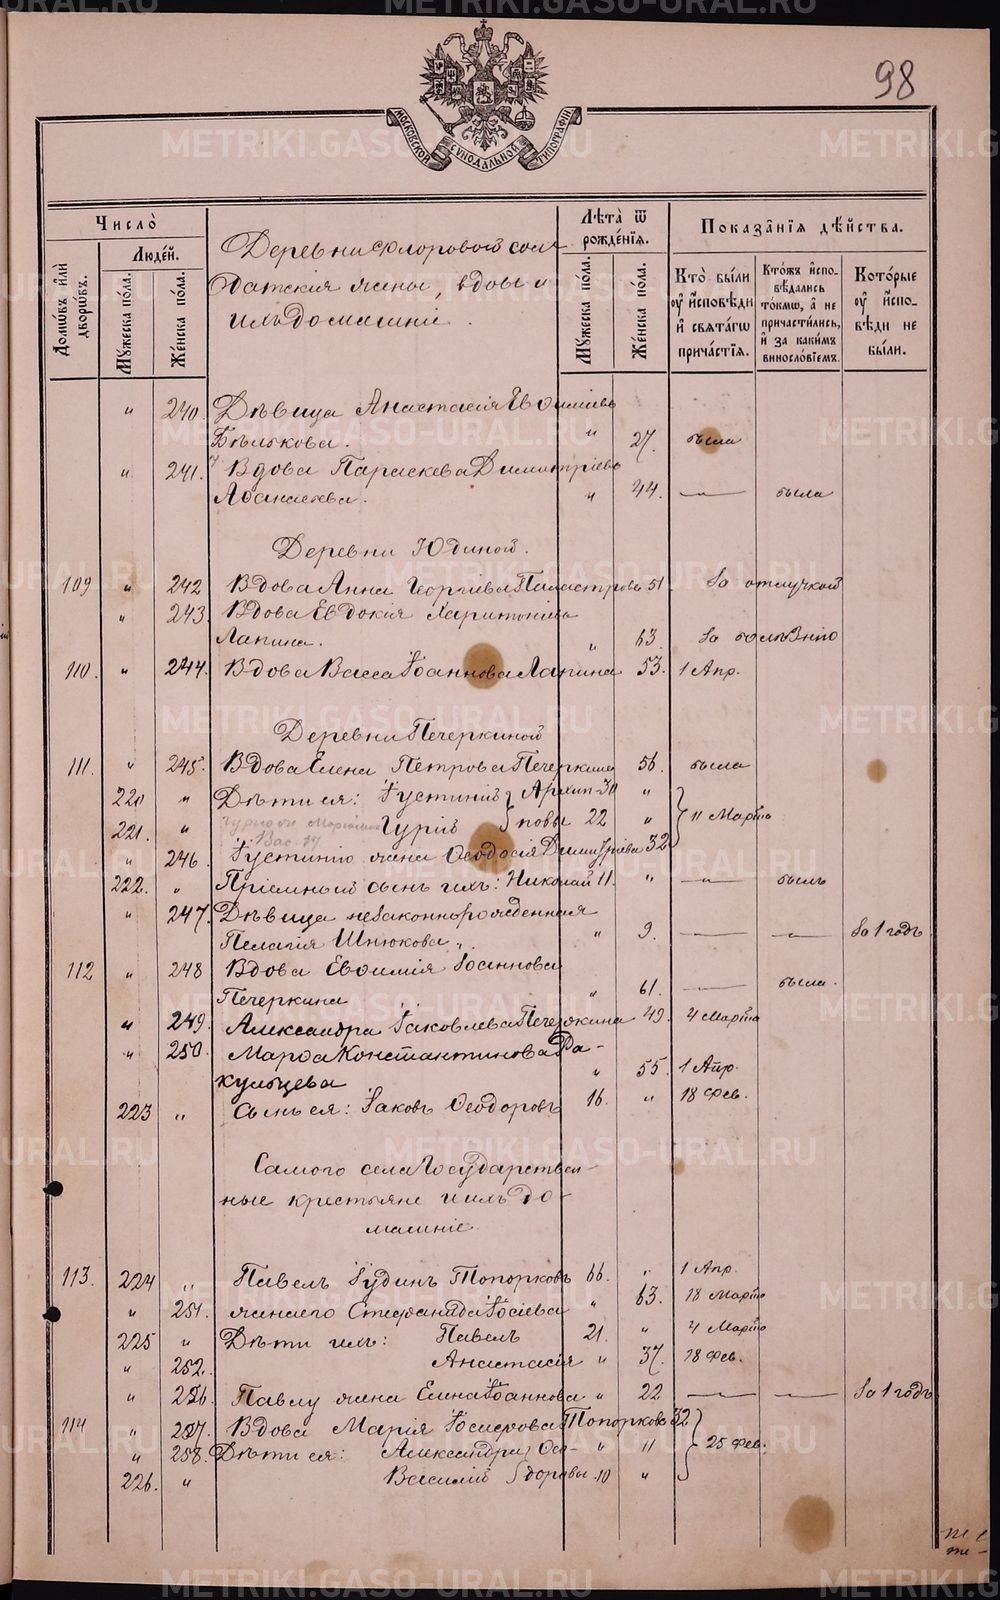 98
МОСКОВСКОЙ СѴНОДАЛЬНОЙ ТИПОГРАФІИ
Число̀
Домѡ́въ и҆лѝ дворѡ́въ.
Люде́й.
Мꙋ́жеска по́ла.
Же́нска по́ла.
Деревни Флоровой сол-
датскія жены, вдовы и
ихъ домашніе.
Лѣта̀ ѿ рожде́нїѧ.
Мꙋ́жеска по́ла.
Же́нска по́ла.
Показа̑нїѧ дѣ́йства.
Кто̀ бы́ли оу҆ и҆сповѣ́ди и҆ свѧта́гѡ прича́стїѧ.
Кто́жъ и҆спо-вѣ́дались то́кмѡ, а҆ не причасти́лись, и҆ за каки́мъ винословїемъ.
Кото́рые оу҆ и҆спо-вѣ́ди не бы́ли.
" 240. Дѣвица Анастасія Евѳиміева
Бѣлькова. " 27. была
" 241. Вдова Параскева Димитріева
Аѳанасьева. " 44. — была
Деревни Юдиной.
109 " 242 Вдова Анна Георгіева Паластрова 51. За отлучкой
" 243. Вдова Евдокія Харитоніева
Лапина. " 63. За болѣзнію
110. " 244. Вдова Васса Іоаннова Лапина 53. 1 Апр.
Деревни Печеркиной
111. " 245. Вдова Елена Петрова Печеркина 56. была
220 " Дѣти ея: Іустинъ } Архип- 30 "
221. " Гурій } повы 22 " } 11 Марта
" 246. Іустинію жена Ѳеодосія Димитріева 32
222. " Пріемный сынъ ихъ: Николай 11. " — былъ
" 247. Дѣвица незаконнорожденная
Пелагія Шнюкова ". " 9. — — За 1 годъ
112 " 248 Вдова Евѳимія Іоаннова
Печеркина " 61. — была.
" 249. Александра Іаковлева Печеркина 49. 4 Марта
" 250. Марѳа Константинова Ва-
кульцева " 55. 1 Апр.
223 " Сынъ ея: Іаковъ Ѳеодоровъ 16. " 18 Фев.
Самого села Государствен-
ные крестьяне и ихъ до-
машніе
113. 224 " Павелъ Іудинъ Топорковъ 66. " 1 Апр.
" 251. жена его Стефанида Іосіева " 63. 18 Марта
225 " Дѣти ихъ: Павелъ 21. " 4 Марта
" 252. Анастасія " 37. 18 Фев.
" 256. Павлу жена Елена Іоаннова " 22 — — За 1 годъ
114 " 257. Вдова Марія Іосифова Топоркова 32
" 258. Дѣти ея: Александра } Ѳео- " 11 } 25 Фев.
226. " Василій } доровы 10 "
METRIKI.GASO-URAL.RU